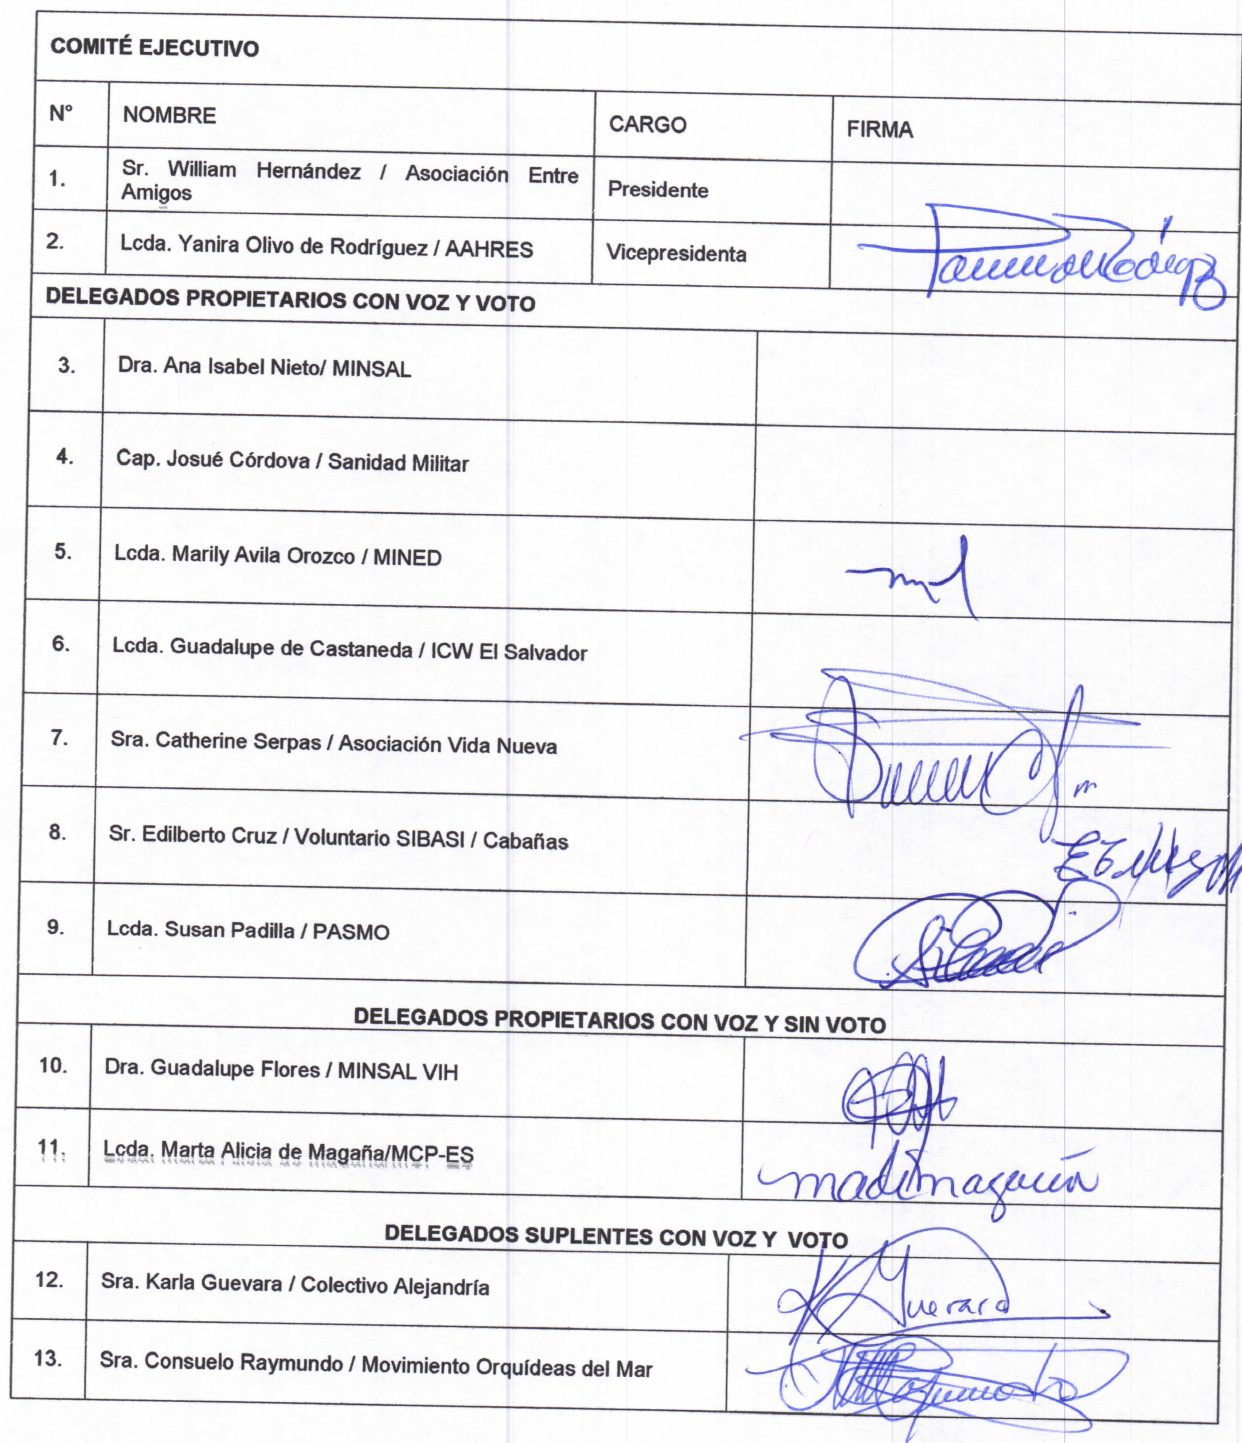 COMITÉ EJECUTIVO
N° NOMBRE CARGO FIRMA
1. Sr. William Hernández / Asociación Entre Amigos Presidente
2. Lcda. Yanira Olivo de Rodríguez / AAHRES Vicepresidenta
DELEGADOS PROPIETARIOS CON VOZ Y VOTO
3. Dra. Ana Isabel Nieto/ MINSAL
4. Cap. Josué Córdova / Sanidad Militar
5. Lcda. Marily Avila Orozco / MINED
6. Lcda. Guadalupe de Castaneda / ICW El Salvador
7. Sra. Catherine Serpas / Asociación Vida Nueva
8. Sr. Edilberto Cruz / Voluntario SIBASI / Cabañas
9. Lcda. Susan Padilla / PASMO
DELEGADOS PROPIETARIOS CON VOZ Y SIN VOTO
10. Dra. Guadalupe Flores / MINSAL VIH
11. Lcda. Marta Alicia de Magaña/MCP-ES
DELEGADOS SUPLENTES CON VOZ Y VOTO
12. Sra. Karla Guevara / Colectivo Alejandría
13. Sra. Consuelo Raymundo / Movimiento Orquídeas del Mar